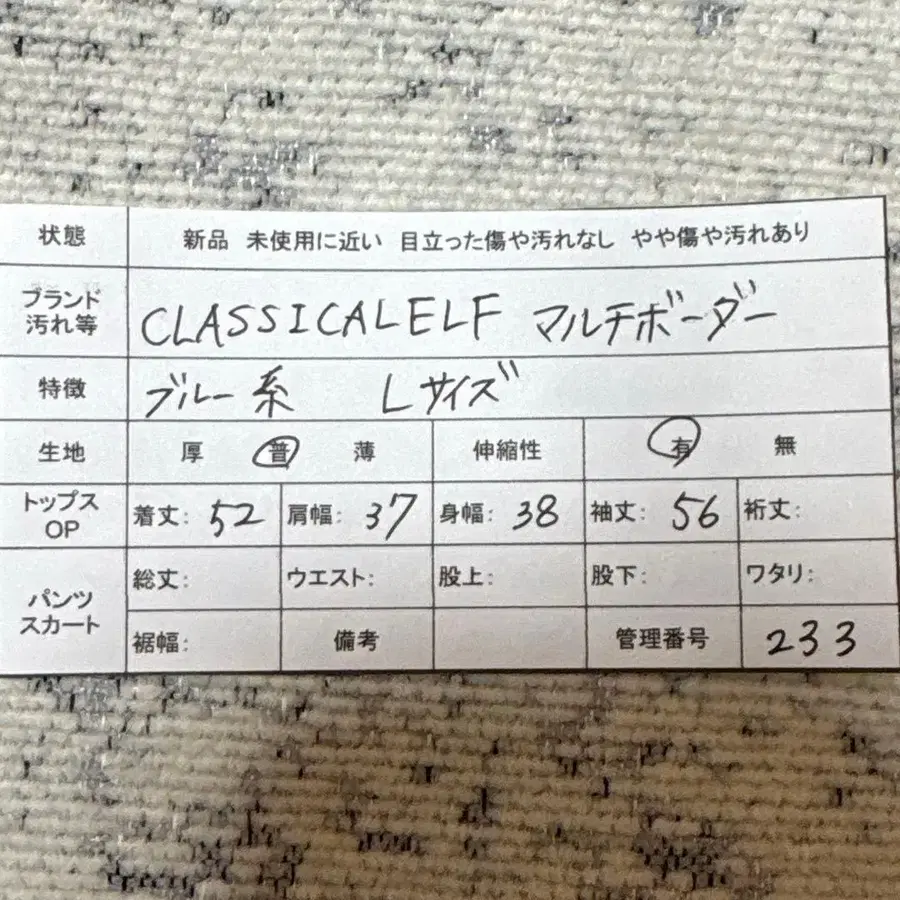 状態 新品 未使用に近い 目立った傷や汚れなし やや傷や汚れあり
ブランド 汚れ等 CLASSICALELF マルチボーダー
特徴 ブルー系 Lサイズ
生地 厚 普 薄 伸縮性 有 無
トップス OP 着丈: 52 肩幅: 37 身幅: 38 袖丈: 56 裄丈:
パンツ スカート 総丈: ウエスト: 股上: 股下: ワタリ:
裾幅: 備考 管理番号 233